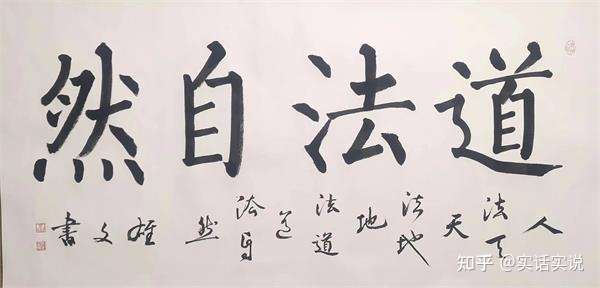 道法自然
人法天天法地地法道道法自然 雄文書
知乎 @实话实说